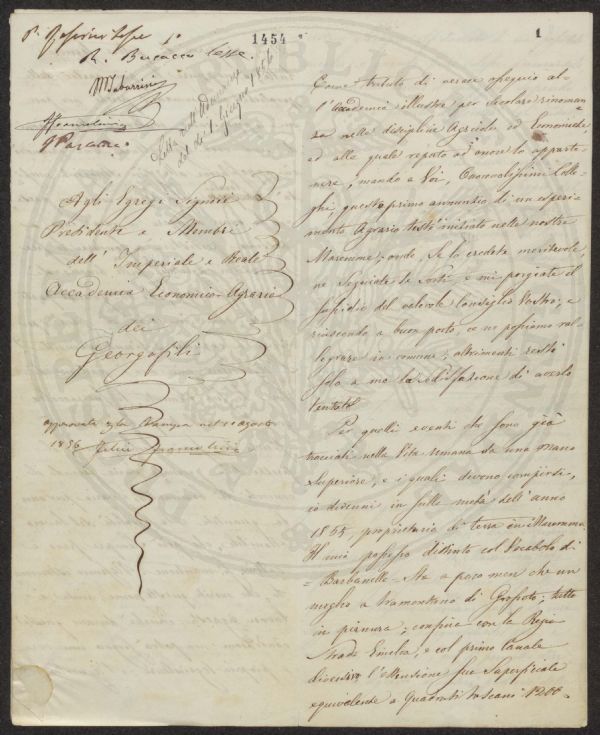 1454
1
R.
Letta nell'Adunanza
del dì 1. Giugno 1856
Agli Egregi Signori
Presidente e Membri
dell' Imperiale e Reale
Accademia Economico-Agraria
dei
Georgofili
approvata per la stampa nel 10 agosto
1856
Come tributo di verace ossequio al-
l'Accademia illustre per secolare rinoman-
za nelle discipline Agricole ed Economiche
ed alla quale reputo ad onore lo apparte-
nere, mando a Voi, Onorevolissimi Colle-
ghi, questo primo annunzio di un esperi-
mento Agrario testè iniziato nelle nostre
Maremme; onde, se lo crediate meritevole,
ne seguiate le sorti, e mi porgiate il
sussidio del valevole consiglio Vostro; e
riuscendo a buon porto, ce ne possiamo ral-
legrare in comune; altrimenti resti
solo a me la sodisfazione di averlo
tentato.
Per quelli eventi che sono già
tracciati nella Vita umana da una mano
Superiore, e i quali devono compiersi,
io divenni in sulla metà dell'anno
1855, proprietario di terra in Maremma.
Il mio possesso distinto col Vocabolo di
= Barbanella = sta a poco men che un
miglio a tramontana di Grosseto; tutto
in pianura; confina con la Regia
Strada Emilia, e col primo Canale
diversivo l'estensione sua Superficiale
equivalente a Quadrati toscani 1200.